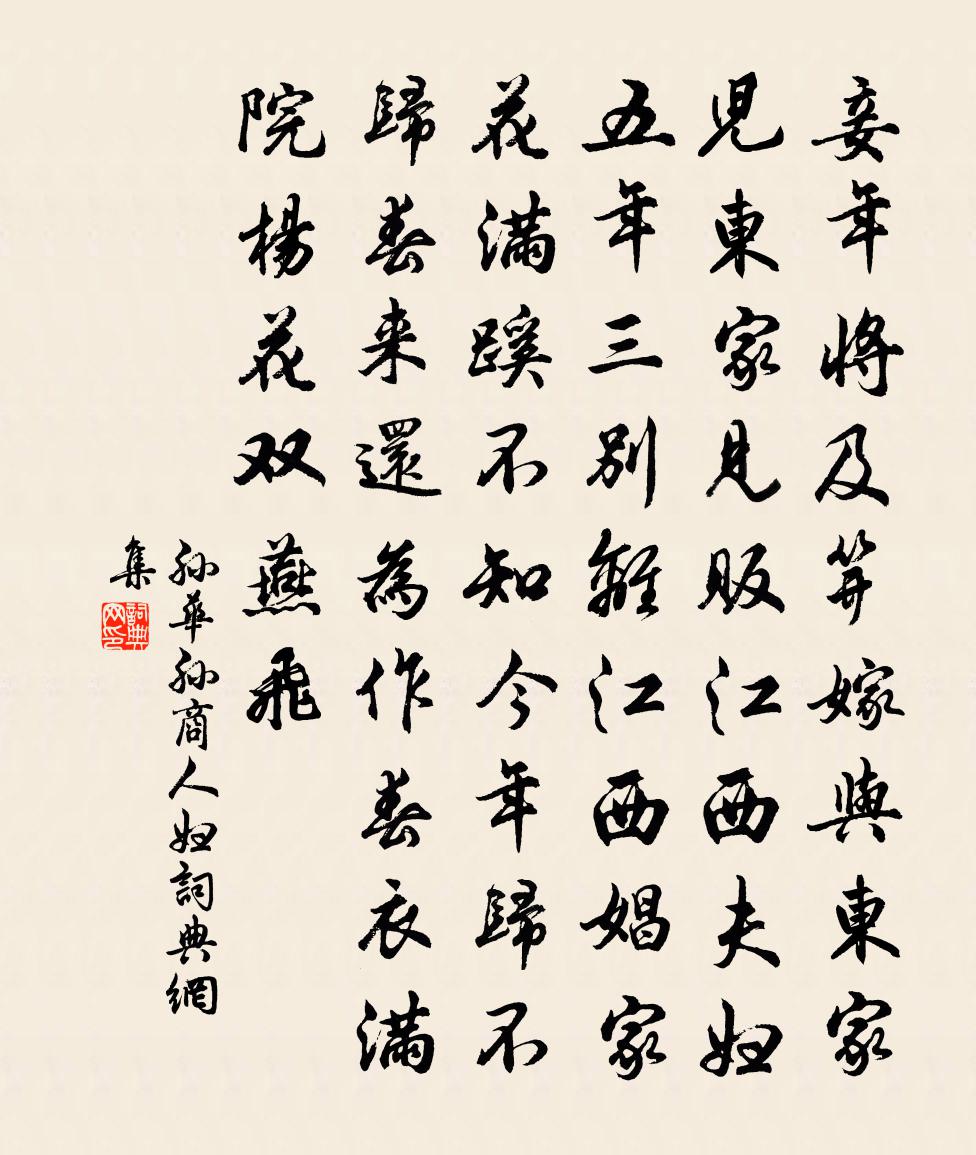 妾年將及笄嫁與東家
兒東家見販江西夫婦
五年三別離江西娼家
花滿蹊不知今年歸不
歸春来還為作春衣滿
院楊花双燕飛
孫華孫商人婦詞典網
集
詞典网印